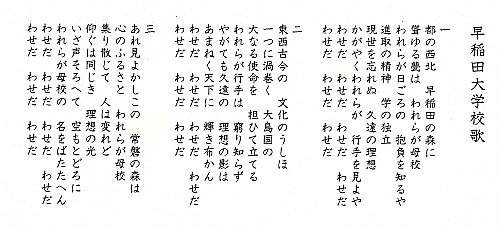 早稲田大学校歌
一
都の西北　早稲田の森に
聳ゆる甍は　われらが母校
われらが日ごろの　抱負を知るや
進取の精神　学の独立
現世を忘れぬ　久遠の理想
かがやくわれらが　行手を見よや
わせだ　わせだ　わせだ　わせだ
わせだ　わせだ　わせだ
二
東西古今の　文化のうしほ
一つに渦巻く　大島国の
大なる使命を　担ひて立てる
われらが行手は　窮り知らず
やがても久遠の　理想の影は
あまねく天下に　輝き布かん
わせだ　わせだ　わせだ　わせだ
わせだ　わせだ　わせだ
三
あれ見よかしこの　常磐の森は
心のふるさと　われらが母校
集り散じて　人は変れど
仰ぐは同じき　理想の光
いざ声そろへて　空もとどろに
われらが母校の　名をばたたへん
わせだ　わせだ　わせだ　わせだ
わせだ　わせだ　わせだ